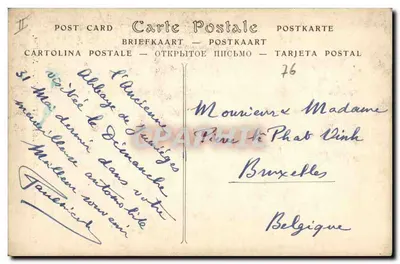 II
POST CARD Carte Postale POSTKARTE
BRIEFKAART — POSTKAART
CARTOLINA POSTALE — ОТКРЫТОЕ ПИСЬМО — TARJETA POSTAL
76
l'Ancienne
Abbaye de Jumièges
visitée le Dimanche
31 Mai dernier dans votre
merveilleuse automobile
Meilleur souvenir
Monsieur & Madame
Pierre
Bruxelles
Belgique